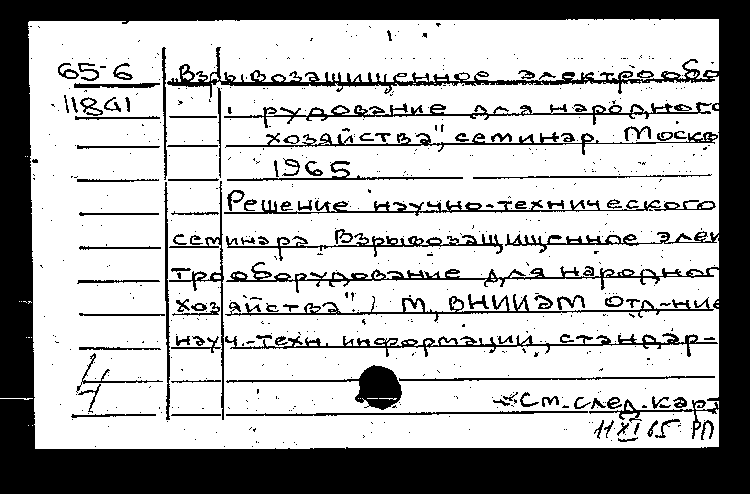 65-6 „Взрывозащищенное электрообо
11841 рудование для народного
хозяйства", семинар. Москв
1965.
Решение научно-технического
семинара „Взрывозащищенное элек
трооборудование для народног
хозяйства". М., ВНИИЭМ Отд-ние
науч.-техн. информации, стандар-
4
См. след. карт
11 XI 65 РП